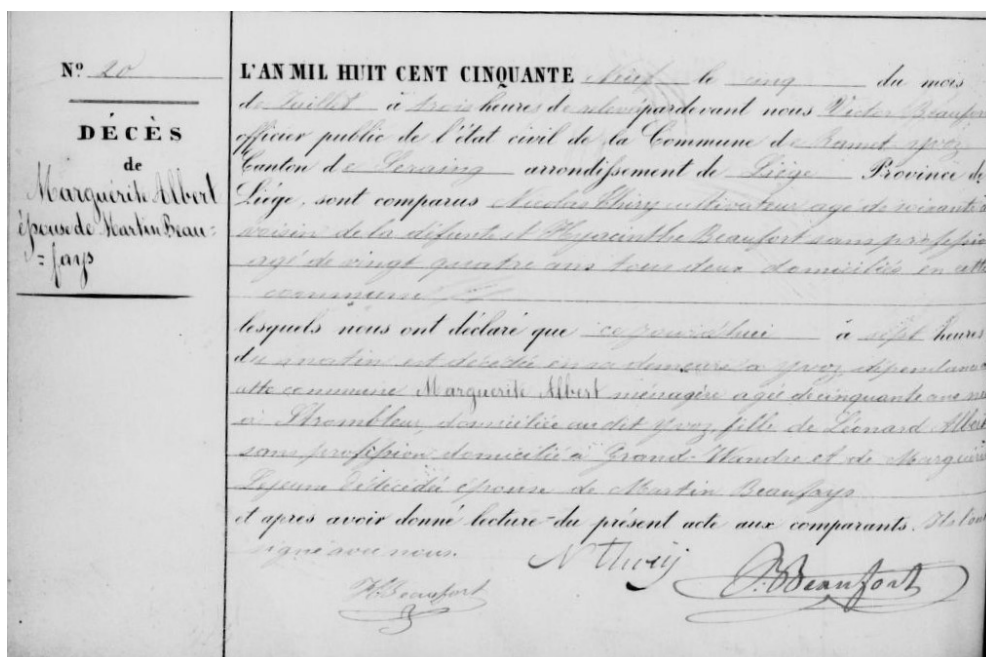 Nº 20
DÉCÈS
de
Marguérite Albert
épouse de Martin Beau=
=fays
L'AN MIL HUIT CENT CINQUANTE Neuf le cinq du mois
de Juillet à trois heures de relevé pardevant nous Victor Beaufort
officier public de l'état civil de la Commune de Ramet yvoz
Canton de Seraing arrondissement de Liége Province de
Liége, sont comparus Nicolas Thiry cultivateur agé de soixante
voisin de la défunte et Hyacinthe Beaufort sans profession
agé de vingt quatre ans tous deux domiciliés en cette
commune
lesquels nous ont déclaré que ce jourd'hui à sept heures
du matin est décédée en sa demeure à yvoz, dépendance
cette commune Marguerite Albert ménagère agée de cinquante ans née
à Trembleur, domiciliée au dit yvoz, fille de Léonard Albert
sans profession domicilié à Grand-Wandre et de Marguerite
Lejeune décédée épouse de Martin Beaufays
et apres avoir donné lecture du présent acte aux comparants. Ils l'ont
signé avec nous.
N Thiry
V. Beaufort
H. Beaufort